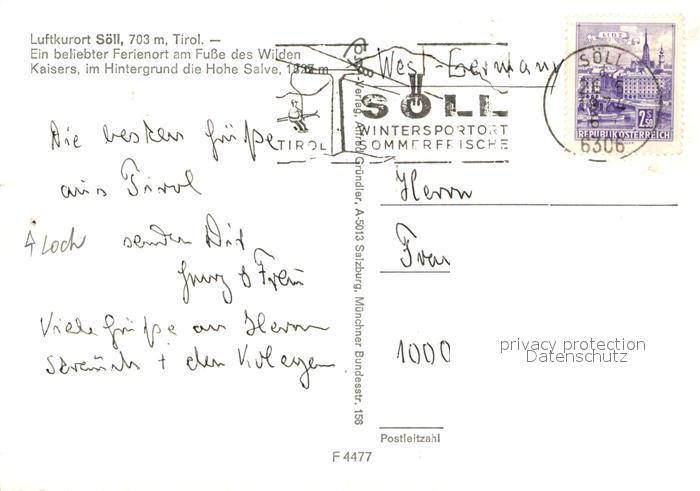 Luftkurort Söll, 703 m, Tirol. —
Ein beliebter Ferienort am Fuße des Wilden
Kaisers, im Hintergrund die Hohe Salve,
West-Germany
LINZ
SÖLL
6306
2.50
REPUBLIK ÖSTERREICH
SÖLL
WINTERSPORTORT
SOMMERFRISCHE
TIROL
Die besten Grüße
aus Tirol
senden Dir
& Frau
Viele Grüße an Herrn
+ den Kollegen
Verlag, Alfred Gründler, A-5013 Salzburg, Münchner Bundesstr. 156
Herrn
Frau
1000
privacy protection
Datenschutz
Postleitzahl
F 4477